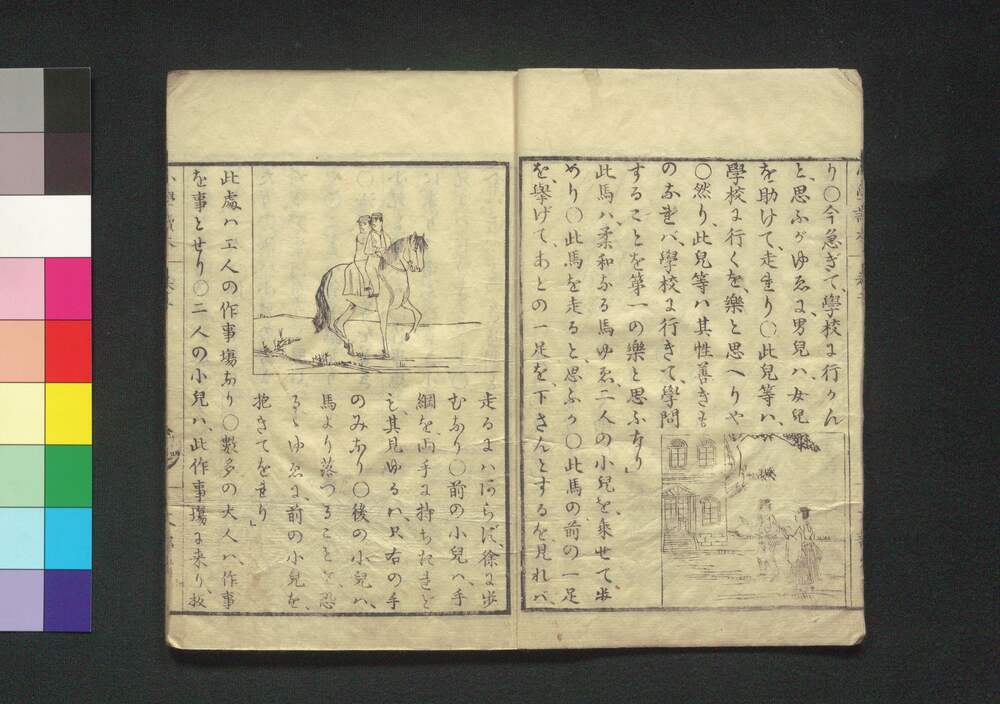 り〇今急ぎて、學校に行かん
と、思ふがゆゑに、男兒ハ、女兒
を助けて、走れり〇此兒等ハ、
學校に行くを、樂と思へりや
〇然り、此兒等ハ其性善きも
のなれバ、學校に行きて、學問
することを第一の樂と思ふなり」
此馬ハ、柔和なる馬ゆゑ、二人の小兒を乘せて、歩
めり〇此馬を走ると、思ふか〇此馬の前の一足
を、擧げて、あとの一足を、下さんとするを見れバ、
走るにハあらず、徐に歩
むなり〇前の小兒ハ、手
綱を両手に持ちたれど
も其見ゆるハ、只右の手
のみなり〇後の小兒ハ、
馬より落つることを、恐
るゝゆゑに、前の小兒を、
抱きてをれり」
此處ハ工人の作事塲なり〇數多の大人ハ、作事
を事とせり〇二人の小兒ハ、此作事塲に来り、故